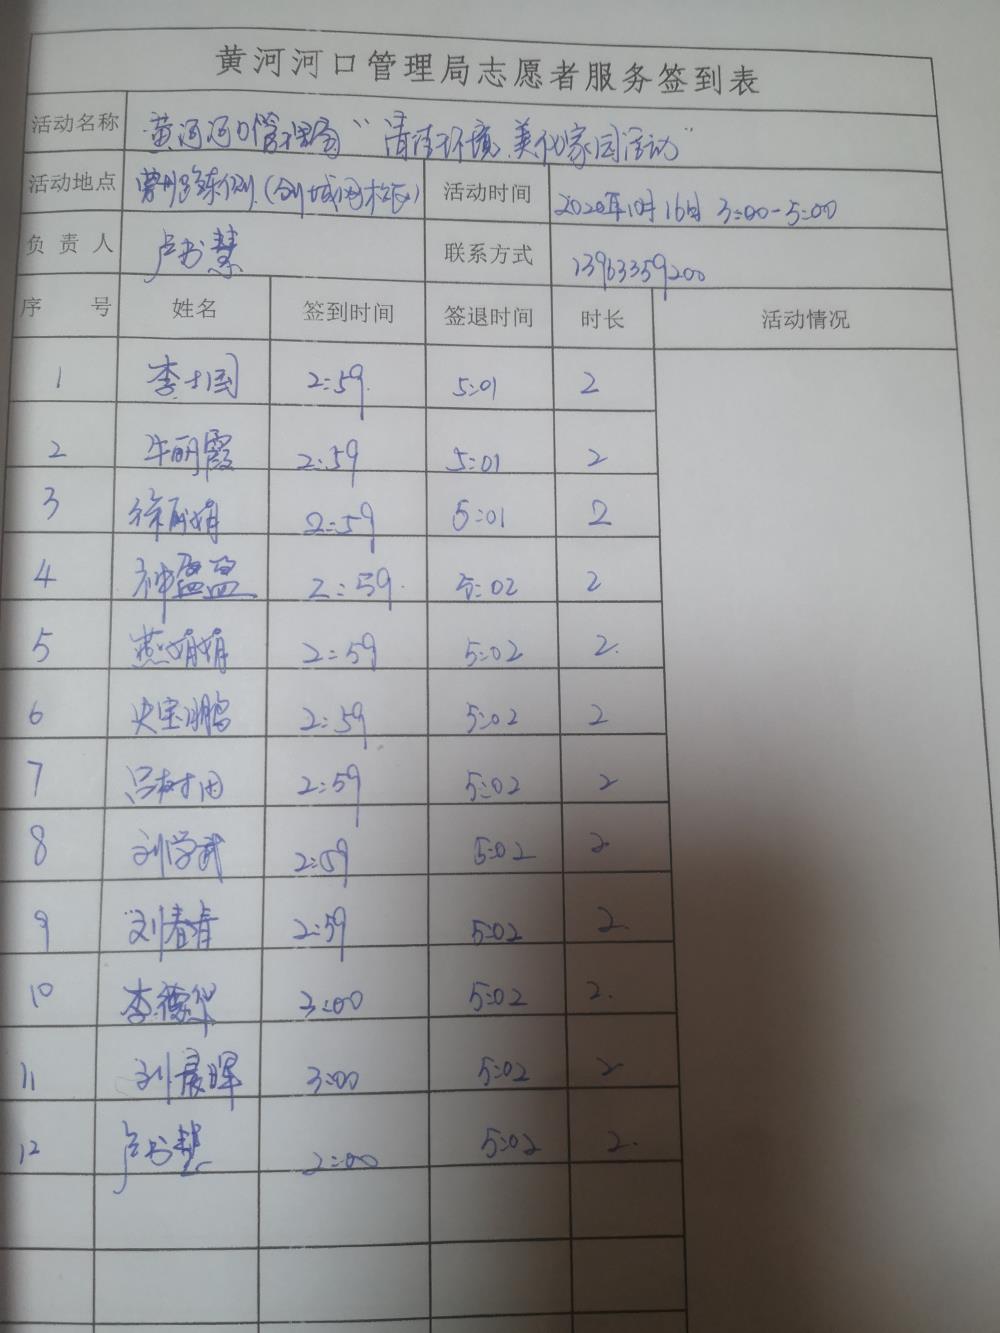 黄河河口管理局志愿者服务签到表
活动名称 黄河河口管理局“清洁环境 美化家园活动”
活动地点 活动时间 2020年10月16日 3:00-5:00
负责人 卢书慧 联系方式 13963359200
序号 姓名 签到时间 签退时间 时长 活动情况
1 李士国 2:59 5:01 2
2 牛丽霞 2:59 5:01 2
3 徐丽娟 2:59 5:01 2
4 神盈盈 2:59 5:02 2
5 燕娟娟 2:59 5:02 2
6 史宝鹏 2:59 5:02 2
7 吕树田 2:59 5:02 2
8 刘学武 2:59 5:02 2
9 刘春青 2:59 5:02 2
10 李德华 3:00 5:02 2
11 刘晨晖 3:00 5:02 2
12 卢书慧 2:00 5:02 2